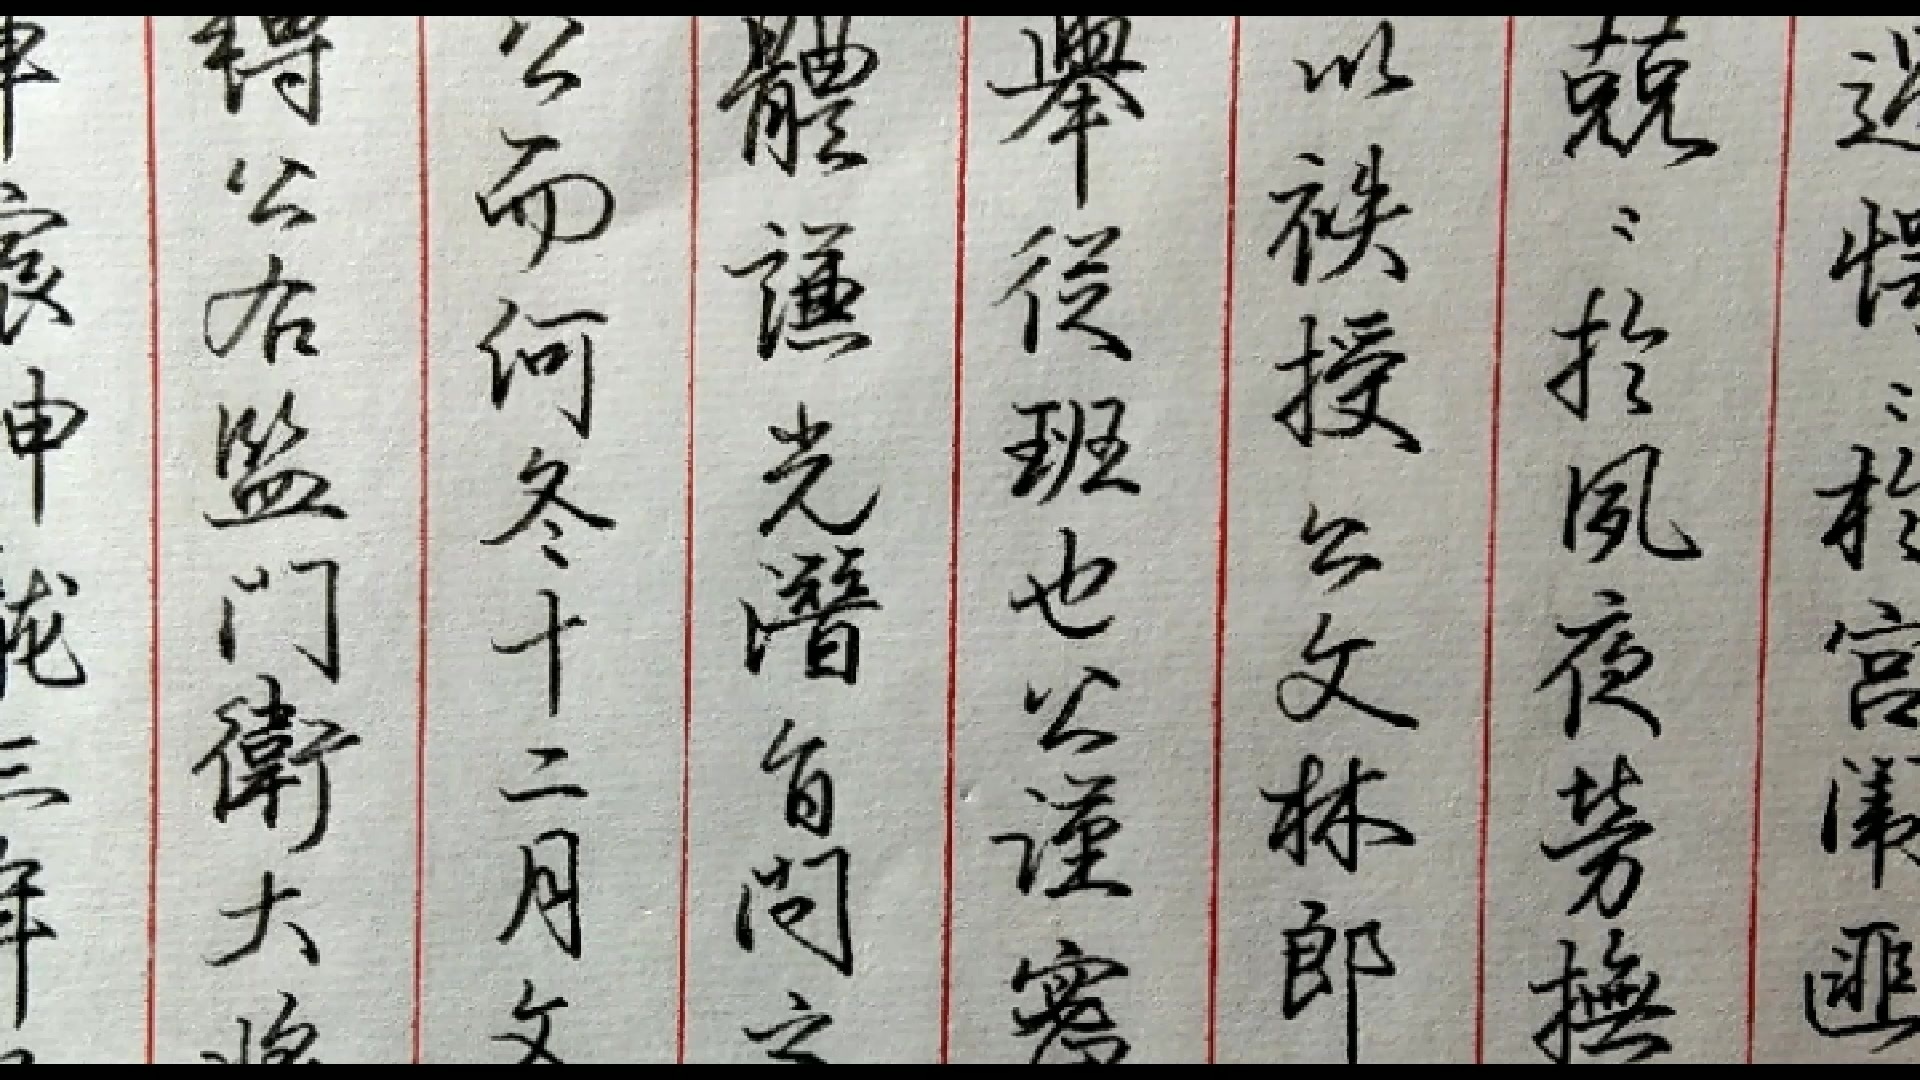 愕〻於宮闈匪
兢〻於夙夜勞撫
以秩授公文林郎
舉從班也公謹密
體謙光潛旨問之
公而何冬十二月文
特公右監門衛大將
宸申龍三年